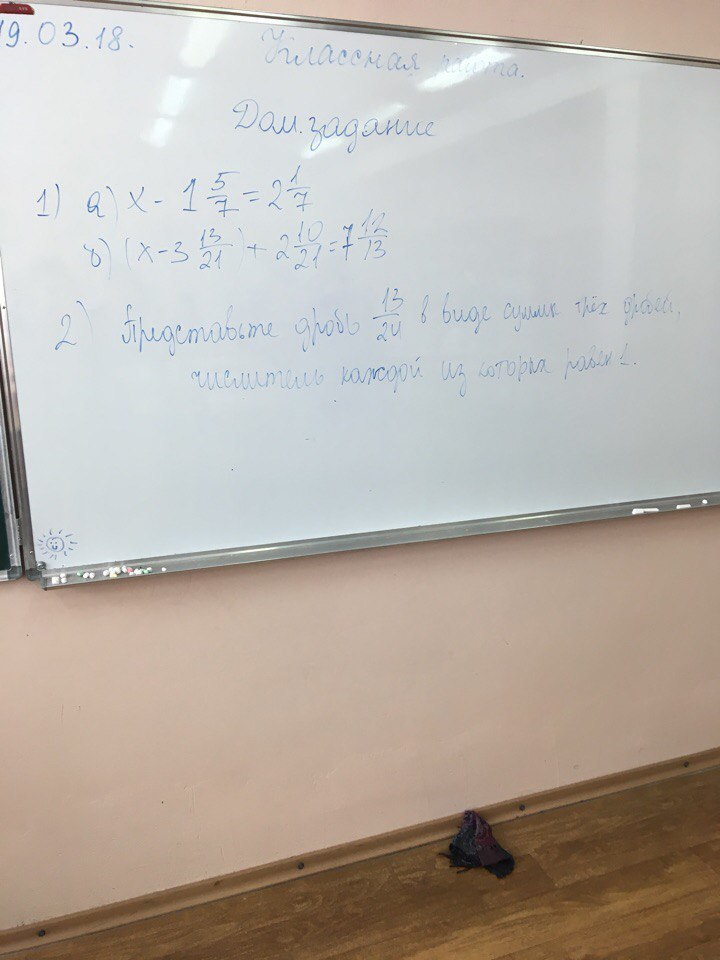 19.03.18.
Классная работа.
Дом. задание
1) а) x - 1 5/7 = 2 1/7
б) (x - 3 13/21) + 2 10/21 = 7 12/13
2) Представьте дробь 13/24 в виде суммы трёх дробей,
числитель каждой из которых равен 1.